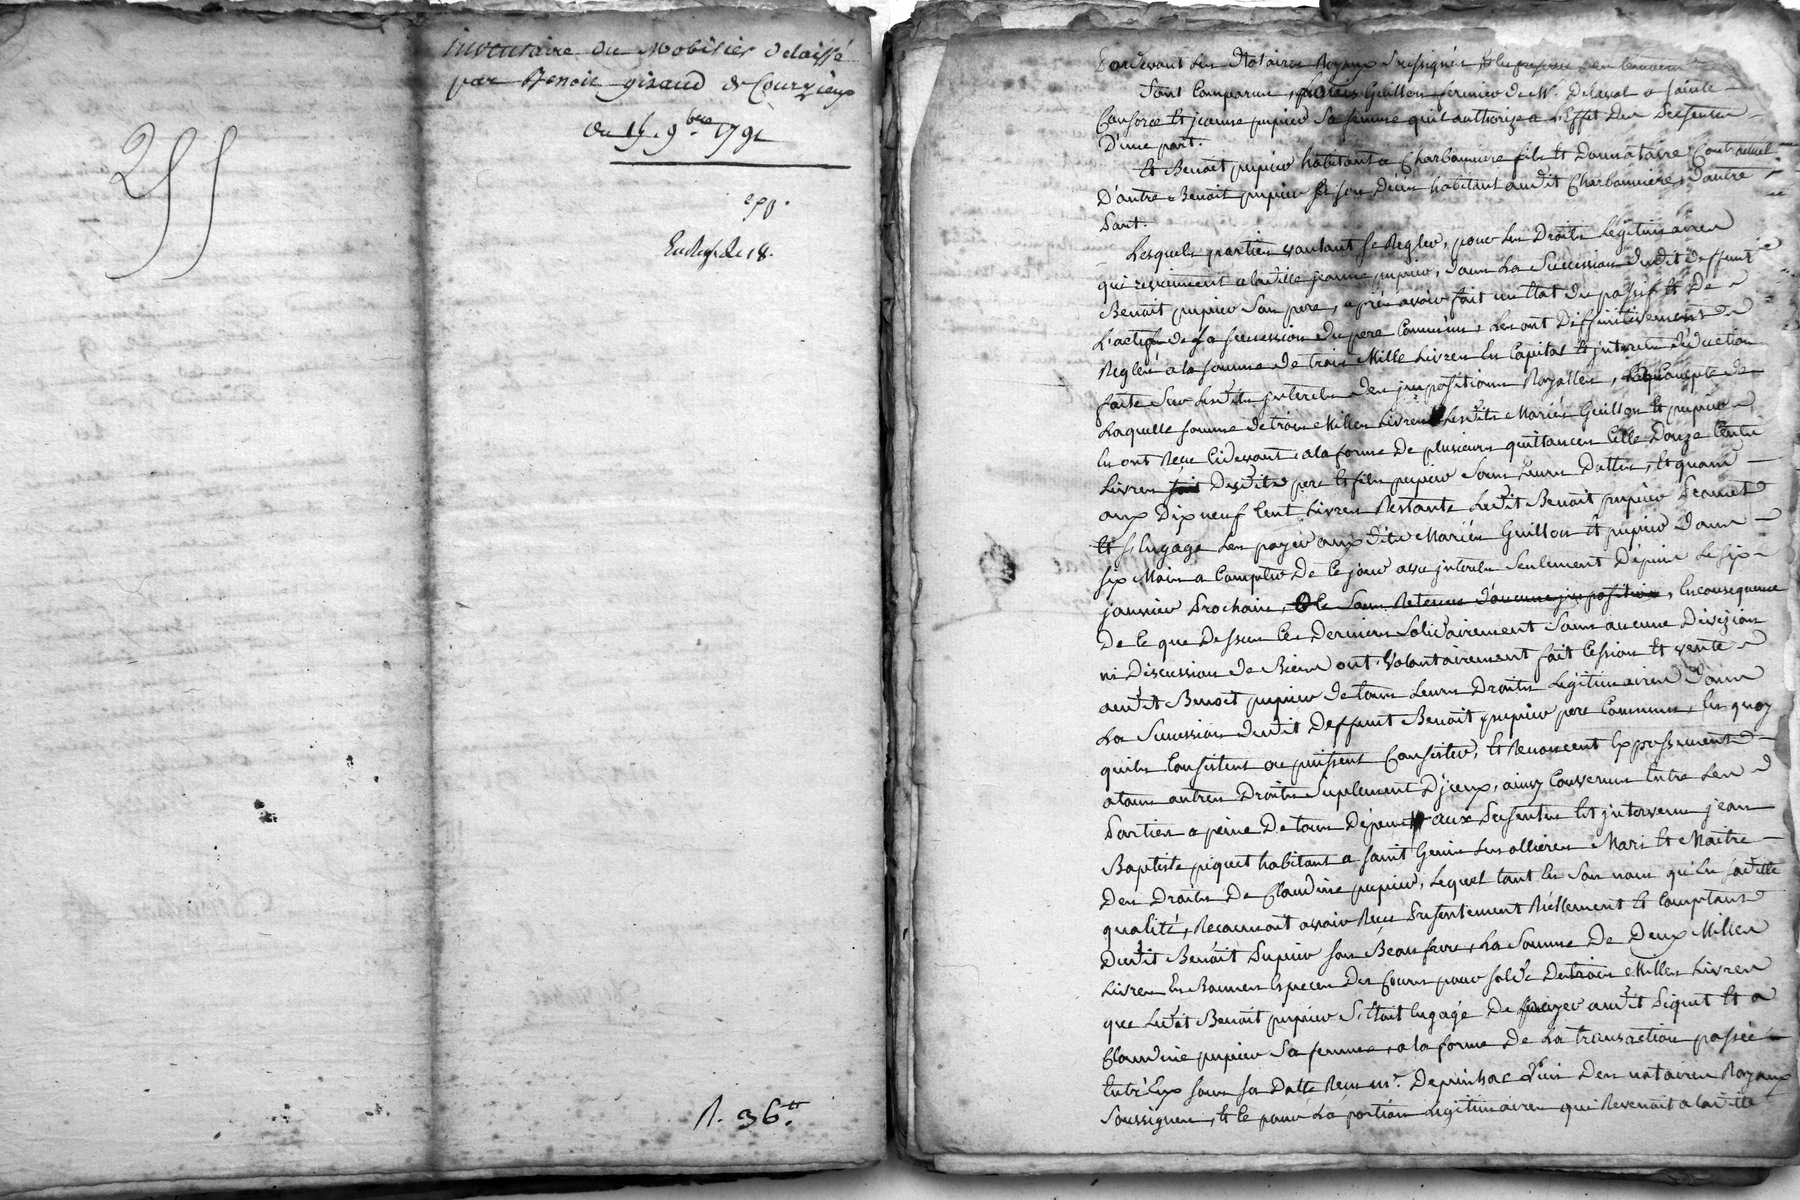 inventaire du Mobilier delaissé
par Benoit giraud de Courzieux
du 15. 9.bre 1791
255
exp.
R. 36.tt
Pardevant Les Notaires Royaux Soussignés
Sont Comparus, Guillon fermier de Mr. Delaval a Sainte
Consorce Et jeanne pupier Sa femme quil authorize a L'Effet Des Presentes
D'une part.
Et Benoit pupier habitant a Charbonniere fils Et Donnataire Contractuel
D'autre Benoit pupier habitant audit Charbonniere, d'autre
Part.
Lesquels parties voulant se Regler, pour Les Droits Légitimaires
qui reviennent a ladite jeanne pupier, dans La Succession dudit deffunt
Benoit pupier Son pere, après avoir fait un Etat du passif Et De
L'actif de La Succession du pere Commun, Les ont Diffinitivement
Reglés a la somme de trois Mille Livres En Capital Et interets déduction
faite Sur Lesdits interets des impositions Royalles, a Compte de
Laquelle somme de trois Milles Livres Lesdits Mariés Guillon Et pupier
En ont Reçu Cidevant, a la forme De plusieurs quittances Celle Douze Cents
Livres Desdits pere Et fils pupier Sous Leurs Dattes, Et quant
aux Dix neuf Cent Livres Restants Ledit Benoit pupier Promet
Et S'Engage Les payer auxdits Mariés Guillon Et pupier dans
six Mois a Compter De Ce jour avec interets Seulement Depuis Le six
janvier Prochain, Sans Retenue d'aucune imposition, En consequence
De Ce que Dessus Ces Derniers Solidairement Sans aucune Division
ni Discussion de Biens ont Volontairement fait Cession Et vente
audit Benoit pupier de tous Leurs Droits Légitimaires dans
La Succession dudit Deffunt Benoit pupier pere Commun, En quoy
quils Consistent ou puissent Consister, Et Renoncent Expressement
a tous autres Droits Suplement D'iceux, ainsy Convenus Entre Les
Parties a peine De tous Dépens aux Presentes Est intervenu jean
Baptiste piquet habitant a Saint Genis Les ollieres Mari Et Maitre
Des Droits De Claudine pupier, Lequel tant En Son nom qu'En Sadite
qualité, Reconnoit avoir Reçu Presentement Réellement Et Comptant
Dudit Benoit Pupier son Beau frere, La Somme De Deux Milles
Livres En Bonnes Especes Des Cours pour solde De trois Milles Livres
que Ledit Benoit pupier S'Etoit Engagé De payer audit Piquet Et a
Claudine pupier Sa femme, a la forme De La transaction passée
Entr'Eux sous sa Datte Reçu Mr. Deprinsac L'un Des notaires Royaux
Soussignés, Et Ce pour La portion Légitimaire qui Revenoit a ladite